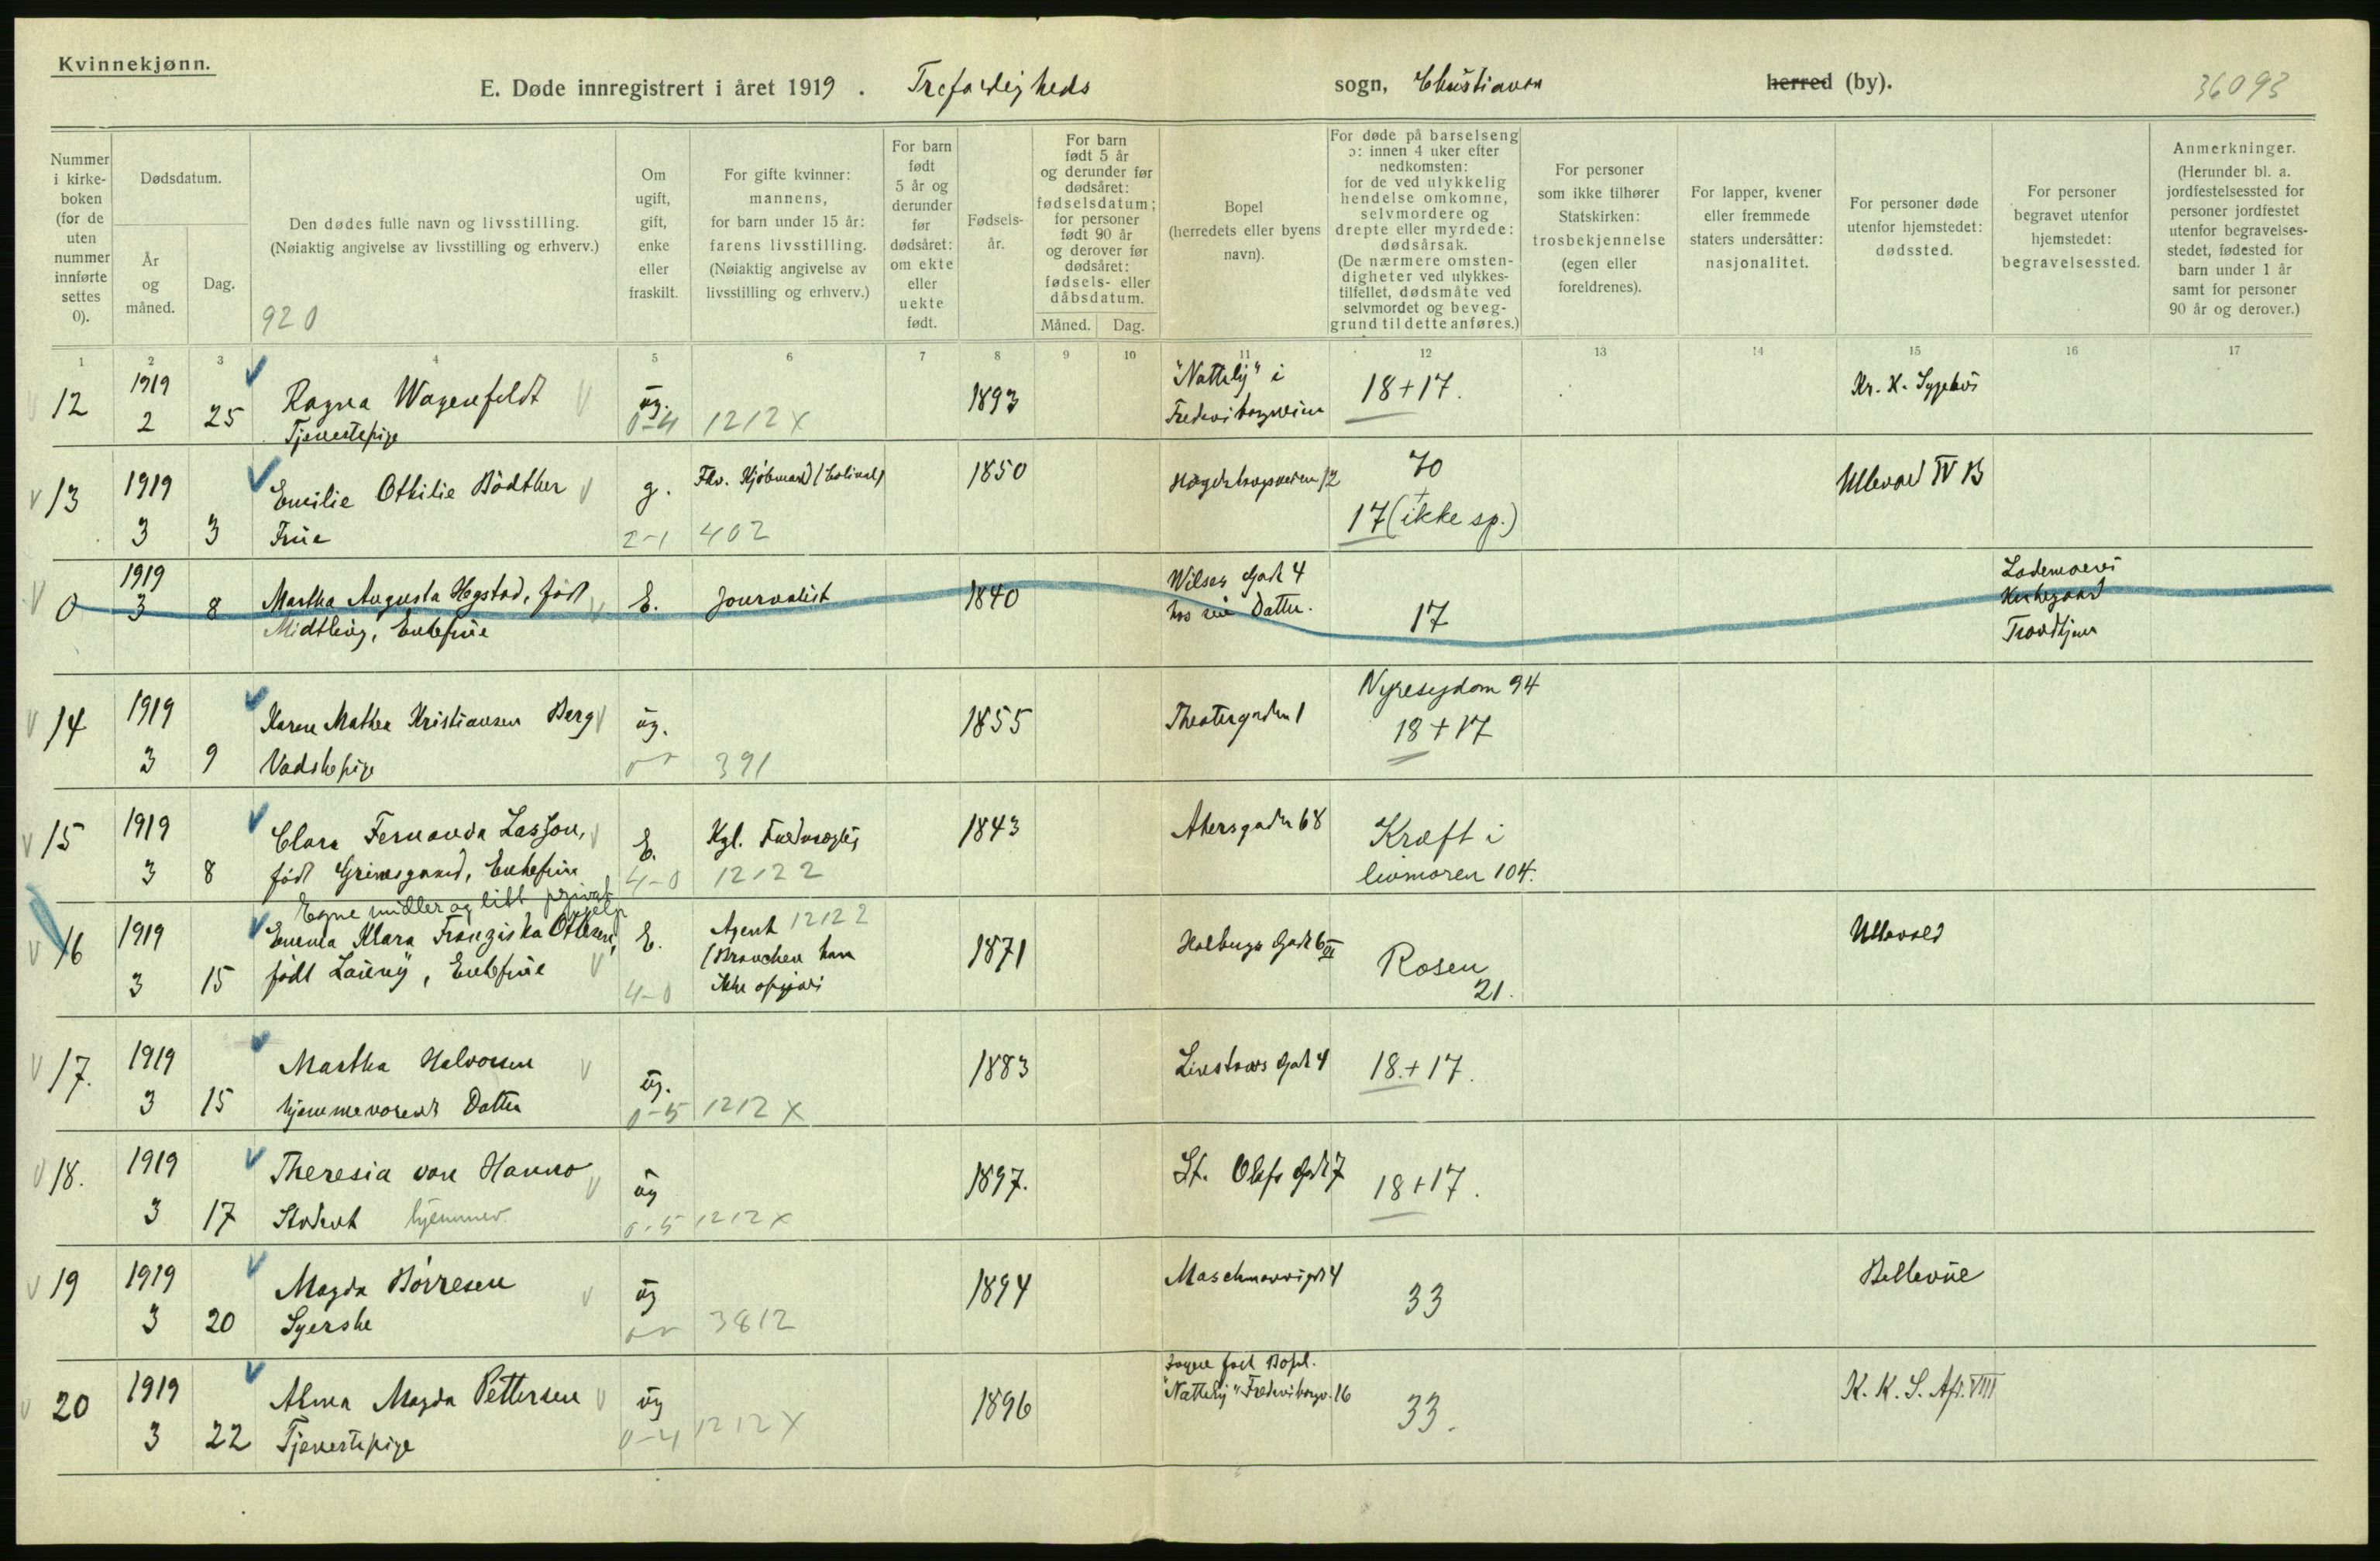 Kvinnekjønn.
E. Døde innregistrert i året 1919 . Trefoldigheds sogn, Christiania herred (by). 36093
Nummer i kirke- boken (for de uten nummer innførte settes 0).
Dødsdatum.
År og måned.
Dag.
Den dødes fulle navn og livsstilling.
(Nøiaktig angivelse av livsstilling og erhverv.)
920
Om ugift, gift, enke eller fraskilt.
For gifte kvinner: mannens, for barn under 15 år: farens livsstilling. (Nøiaktig angivelse av livsstilling og erhverv.)
For barn født 5 år og derunder før dødsåret: om ekte eller uekte født.
Fødsels- år.
For barn født 5 år og derunder før dødsåret: fødselsdatum; for personer født 90 år og derover før dødsåret: fødsels- eller dåbsdatum.
Måned. Dag.
Bopel (herredets eller byens navn).
For døde på barselseng ɔ: innen 4 uker efter nedkomsten: for de ved ulykkelig hendelse omkomne, selvmordere og drepte eller myrdede: dødsårsak. (De nærmere omsten- digheter ved ulykkes- tilfellet, dødsmåte ved selvmordet og beveg- grund til dette anføres.)
For personer som ikke tilhører Statskirken: trosbekjennelse (egen eller foreldrenes).
For lapper, kvener eller fremmede staters undersåtter: nasjonalitet.
For personer døde utenfor hjemstedet: dødssted.
For personer begravet utenfor hjemstedet: begravelsessted.
Anmerkninger. (Herunder bl. a. jordfestelsessted for personer jordfestet utenfor begravelses- stedet, fødested for barn under 1 år samt for personer 90 år og derover.)
1 2 3 4 5 6 7 8 9 10 11 12 13 14 15 16 17
12 1919 2 25 Ragna Wagenfeldt
Tjenestepige
ug. 0-4 1212X 1893 "Nattly" i
18+17. Kr. K. Sygehus
13 1919 3 3 Emilie Othilie Bödtker
Frue
g. 2-1 402 1850
70
+
17 (ikke sp.)
Ullevaal IV B
0 1919 3 8 Martha Augusta Hegstad, født
Enkefrue
E. Journalist 1840 Wilses Gade 4
hos sin Datter.
17
Lademoens
Kirkegaard
Trondhjem
14 1919 3 9 Karen Mathea Kristiansen Berg
Vadskepige
ug. 391 1855 Theatergaden 1
Nyresygdom 94
18+17
15 1919 3 8 Clara Fernanda Lasson,
født Grimsgaard, Enkefrue
E. 4-0 Kgl. Fuldmægtig
12122 1843 Akersgaden 68
Kræft i
livmoren 104.
Egne midler og litt privat hjelp
16 1919 3 15 Emma Klara Franziska Ottesen,
født , Enkefrue
E. 4-0 Agent 12122
(Branchen kan
ikke opgives
1871 Holbergs Gade 6 III
Rosen
21.
Ullevaal
17. 1919 3 15 Martha Halvorsen
hjemmeværende Datter
ug. 0-5 1212X 1883 Linstows Gade 4 18.+17.
18. 1919 3 17 Theresia von Hanno
Student hjemmev.
ug 0-5 1212X 1897. St. Olafs Gade 7 18+17.
19 1919 3 20 Magda Börresen
Syerske
ug 3812 1894 33 Bellevue
20 1919 3 22 Alma Magda Pettersen
Tjenestepige
ug 0-4 1212X 1896 Ingen fast Bopæl.
"Nattly" Frederiksborgv. 16
33. K. K. S. Afd. VIII